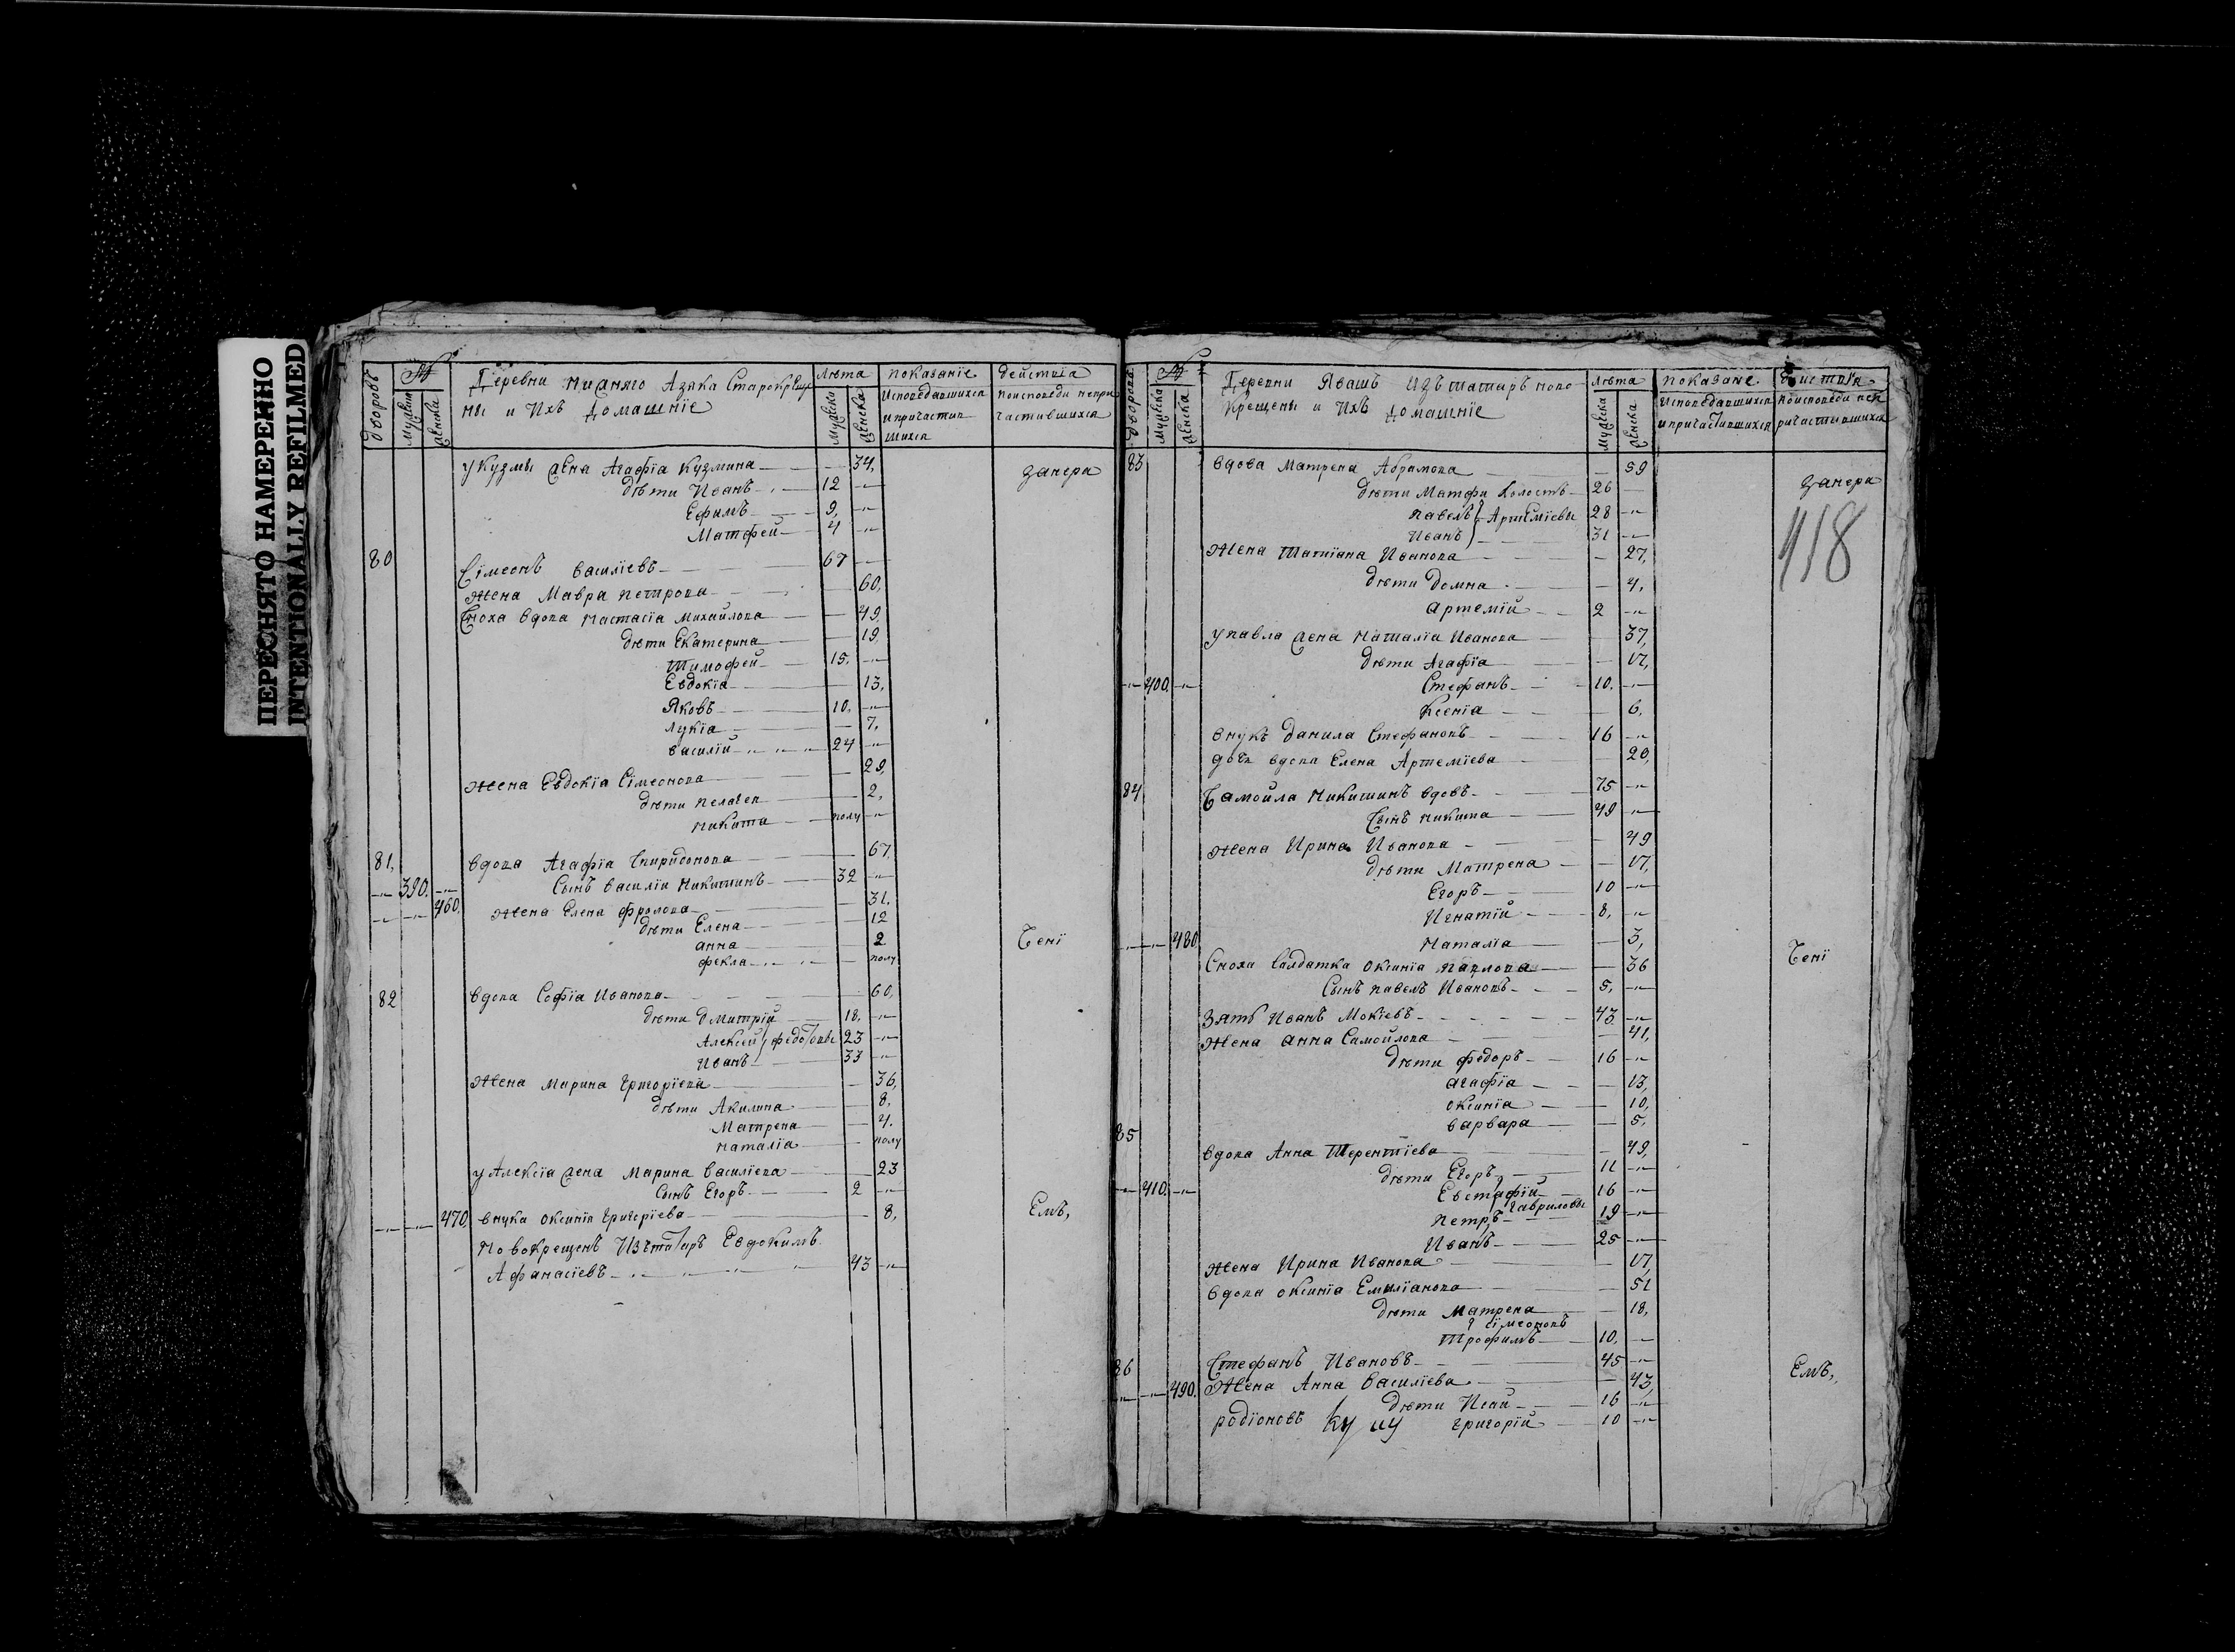 ПЕРЕСНЯТО НАМЕРЕННО
INTENTIONALLY REFILMED
дворовъ
№
мужска
женска
Деревни нижняго Азяка Старокреще
ны и Ихъ домашніе
лѣта
мужска
женска
показаніе
Исповедавшихся
и причастив
шихся
действіа
поисповеди непри
частившихся
у Кузмы жена Агафіа Кузмина 34,
дѣти Иванъ 12
Ефимъ 9,
Матфей 4
80
Сімеонъ василіевъ 67
Жена Мавра петрова 60,
Сноха вдова Настасіа Михайлова 49,
дѣти Екатерина 19
Тимофей 15.
Евдокіа 13,
Яковъ 10.
лукіа 7,
василій 24
Жена Евдокіа Сімеонова 29,
дѣти пелагея 2,
никита полу
81, вдова Агафіа Спиридонова 67,
390. Сынъ василій никитинъ 32
460. Жена Елена фролова 31.
дѣти Елена 12
анна 2
фекла полу
82 вдова Софіа Иванова 60,
дѣти дмитрій 18,
Алексей федотовы 23
Иванъ 33
Жена Марина григоріева 36,
дѣти Акилина 8,
Матрена 4.
наталіа полу
у Алексіа жена марина василіева 23
сынъ Егоръ 2
470, внука оксиніа григоріева 8,
новокрещенъ Изътатаръ Евдокимъ
Афанасіевъ 43
Сені
Емъ,
дворова
№
мужска
женска
Деревни Явашъ изътатаръ ново
крещены и Ихъ домашніе
лѣта
мужска
женска
показане
Исповедавшихся
и причастившихся
поисповеди неп
ричастившихся
83 вдова матрена Абрамова 59
дѣти Матфи холостъ 26
павелъ Артемїевы 28
Иванъ 31
418
Жена Татіана Иванова 27,
дѣти домна 4,
артемій 2
у павла жена наталіа Иванова 37,
дѣти Агафіа 17,
400. Стефанъ 10.
Ксеніа 6,
внукъ данила Стефановъ 16
вдова Елена Артеміева 20,
84 Самойла никитинъ вдовъ 75
Сынъ никита 49
Жена Ирина Иванова 49
дѣти Матрена 17,
Егоръ 10
Игнатій 8,
480 наталіа 3,
Сноха Салдатка оксиніа павлова 36
Сынъ павелъ Ивановъ 5,
Сені
Зять Иванъ Мокіевъ 43
Жена анна Самойлова 41,
дѣти федоръ 16
агафіа 13,
оксиніа 10,
варвара 5,
85
вдова Анна Терентіева 49,
дѣти Егоръ 11
410. Евстафій 16
гавриловы
петръ 19
Иванъ 25
Жена Ирина Иванова 17,
вдова оксиніа Емиліанова 51
дѣти матрена 18,
сімеоновъ
трофимъ 10,
86 Стефанъ Ивановъ 45
490. Жена Анна василіева 43,
дѣти Исай 16
родіоновъ григорій 10
Емъ,